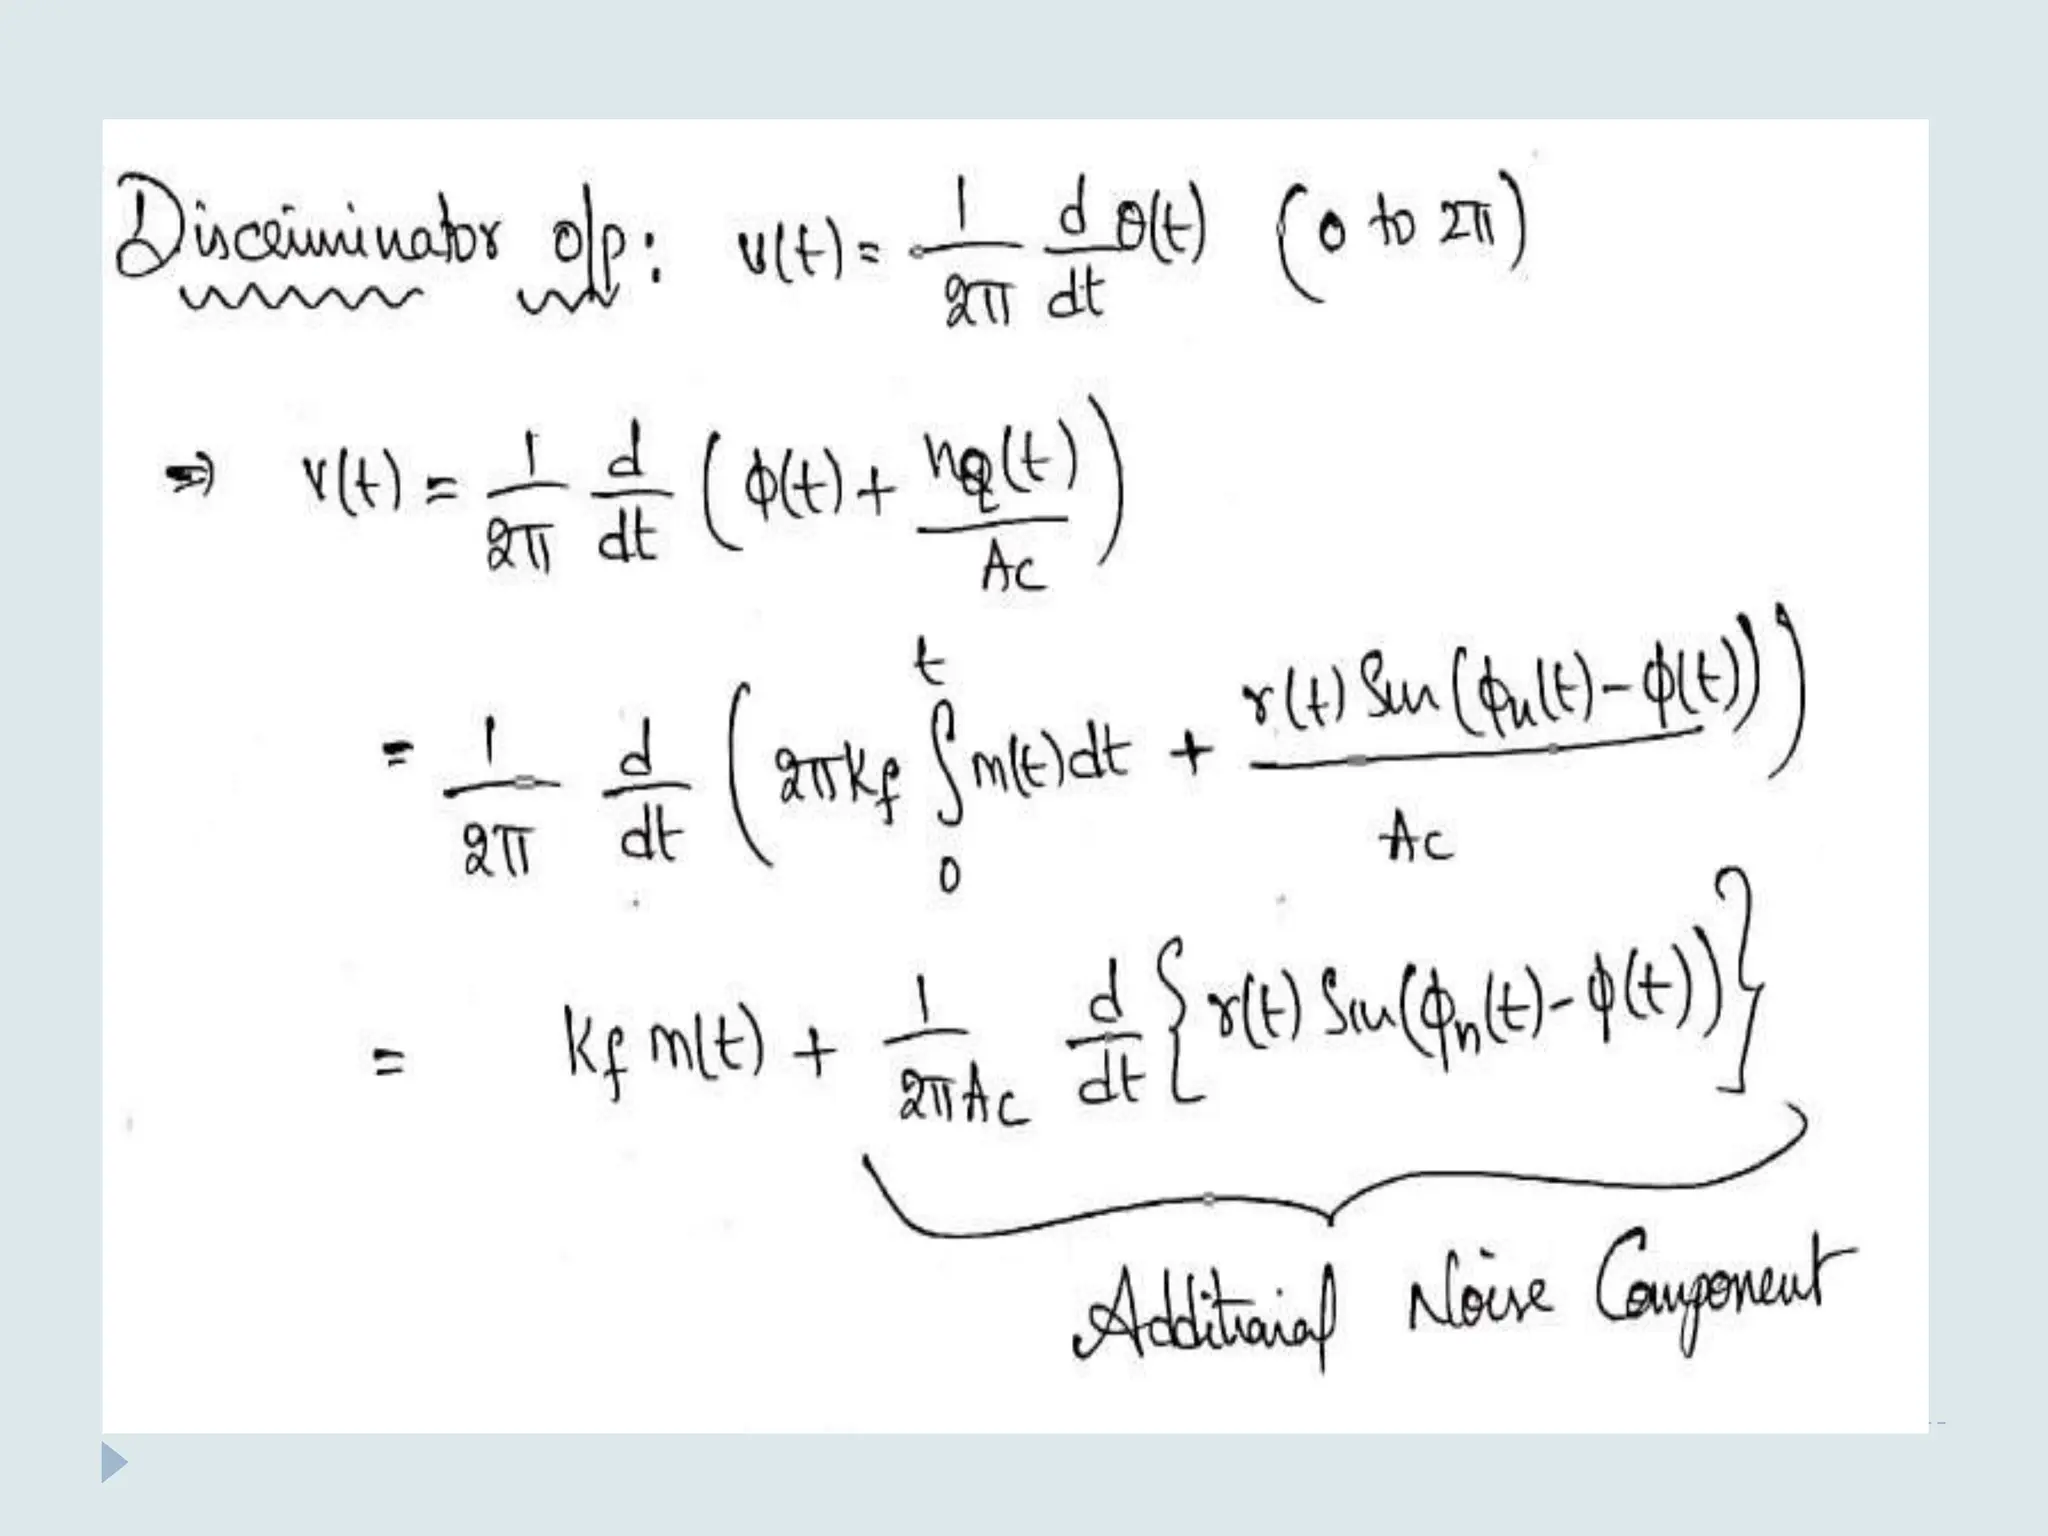 Discriminator o/p: v(t) = 1/2π d/dt θ(t) (0 to 2π)
⇒ v(t) = 1/2π d/dt ( ϕ(t) + nQ(t)/Ac )
= 1/2π d/dt ( 2πKf ∫₀ᵗ m(t)dt + r(t) Sin(ϕn(t) - ϕ(t))/Ac )
= Kf m(t) + 1/2πAc d/dt { r(t) Sin(ϕn(t) - ϕ(t)) }
Additional Noise Component